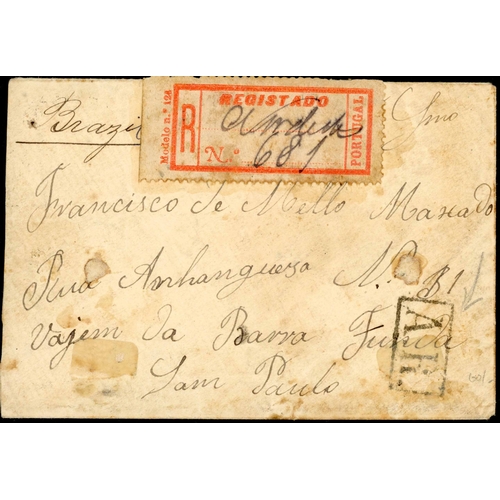 Brazil
REGISTADO
Modelo n.º 194
R
N.º 681
PORTUGAL
Francisco de Mello Maxado
Rua Anhanguera N. 81
Vajem da Barra Funda
Sam Paulo
A.R.